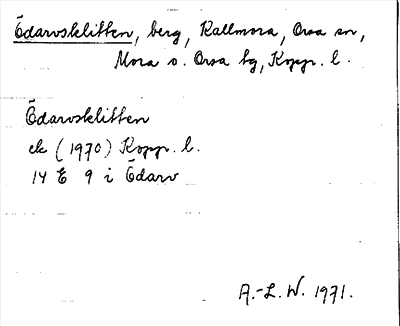 Ödarvsklitten, berg, Kallmora, Orsa sn,
Mora o. Orsa tg, Kopp. l.
Ödarvsklitten
ek (1970) Kopp. l.
14 E 9 i Ödarv
A.-L. W. 1971.